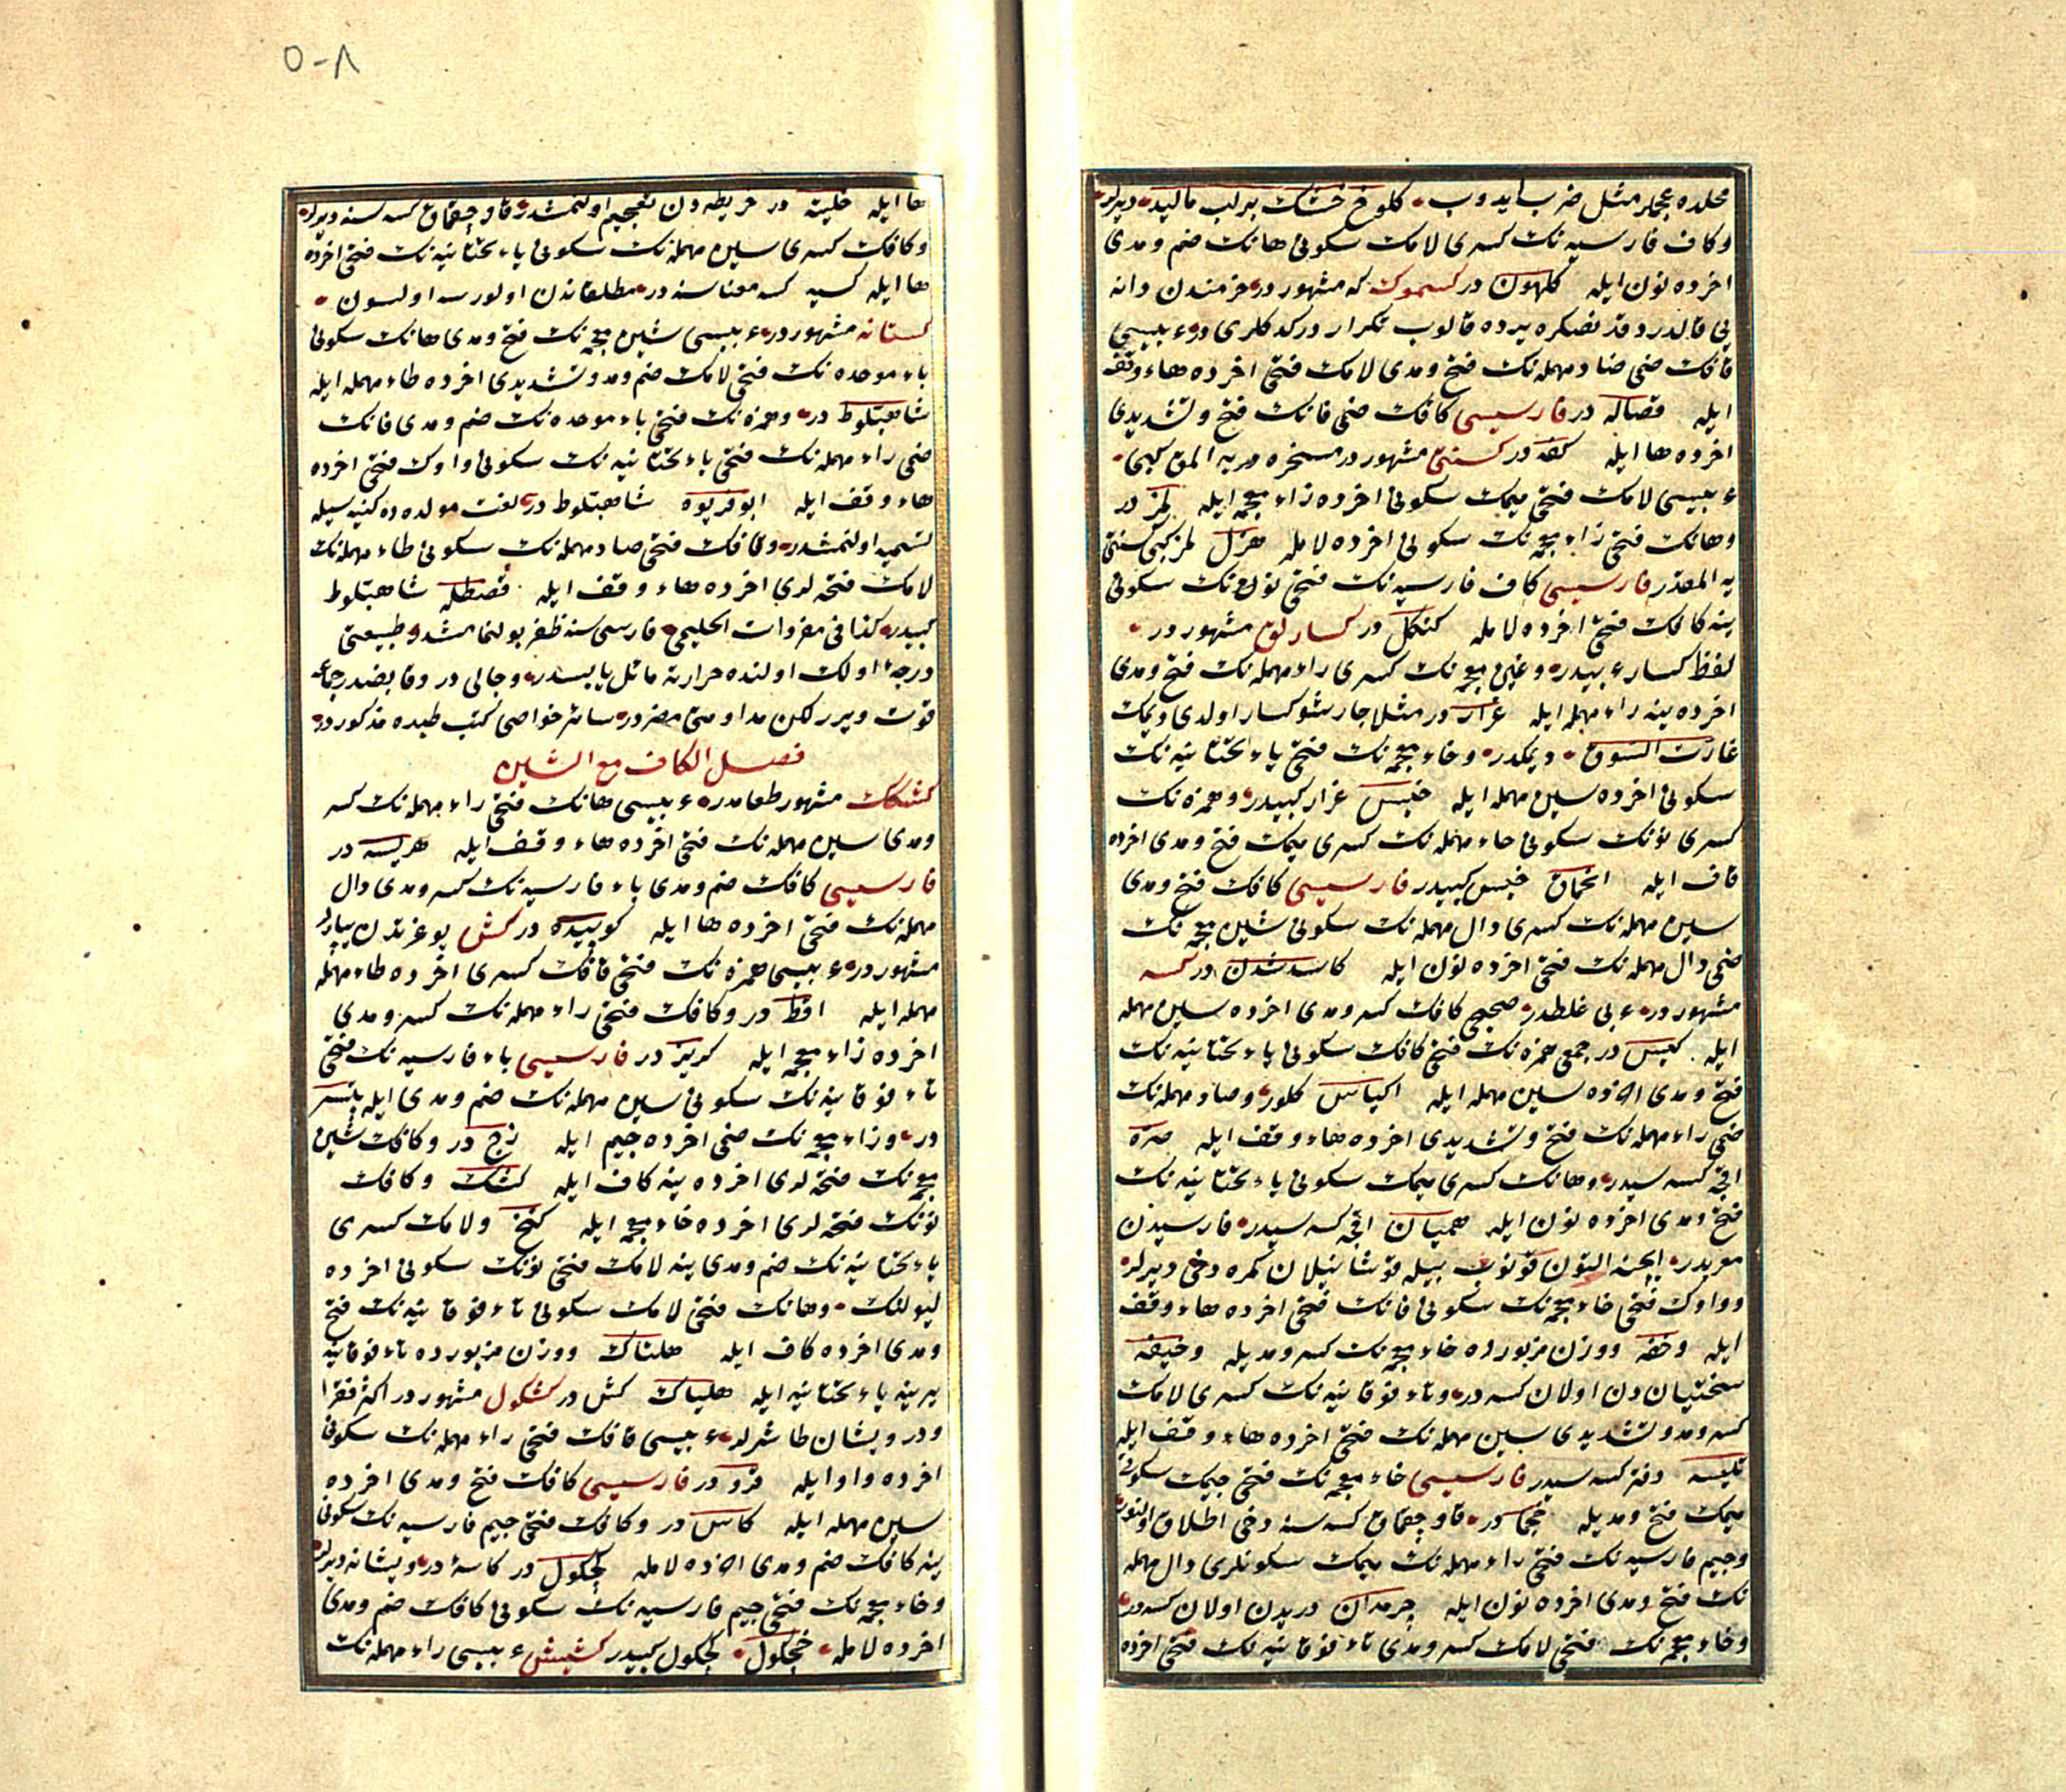 محلده عجملر مثل ضرب ایدوب کلوخ خشک بر لب مالید دیرلر
وکاف فارسیه نک کسری لامک سکونی هانک ضم ومدی
اخرده نون ایله کلهون در کسموک که مشهور در خرمندن دانه
قالدرد قد نصکره یرده قالوب تکرار در کد کلری در عربیسی
قافک ضمی صاد مهمله نک فتح ومدی لامک فتحی اخرده هاء وقف
ایله قصاله در فارسیسی کافک ضمی فانک فتح وتشدیدی
اخرده ها ایله کفه در کستی مشهور در مسخره یه المق کبی
عربیسی لامک فتحی میمک سکونی اخرده زاء معجمه ایله لمز در
وهانک فتحی زاء معجمه نک سکونی اخرده لامله هزل لمز کبی کستی
یه المقدر فارسیسی کاف فارسیه نک فتحی نونک سکونی
ینه کافک فتحی اخرده لامله کنکل در کسارلق مشهور در
لفظ کسار عربیدر وغین معجمه نک کسری راء مهمله نک فتح ومدی
اخرده ینه راء مهمله ایله غرار در مثلا جارشو کسار اولدی دیمک
غارت السوق دیمکدر وخاء معجمه نک فتحی یاء تحتانیه نک
سکونی اخرده سین مهمله ایله خیس غرار کبیدر وهمزه نک
کسری نونک سکونی حاء مهمله نک کسری میمک فتح ومدی اخرده
قاف ایله انحماق خیس کبیدر فارسیسی کافک فتح ومدی
سین مهمله نک کسری دال مهمله نک سکونی شین معجمه نک
ضمی دال مهمله نک فتحی اخرده نون ایله کاسد شدن در کسه
مشهور در عربی غلطدر صحیحی کافک کسر ومدی اخرده سین مهمله
ایله کیس در جمعی همزه نک فتحی کافک سکونی یاء تحتانیه نک
فتح ومدی اخرده سین مهمله ایله اکیاس کلور وصاد مهمله نک
ضمی راء مهمله نک فتح وتشدیدی اخرده هاء وقف ایله صره
اقچه کسه سیدر وهانک کسری میمک سکونی یاء تحتانیه نک
فتح ومدی اخرده نون ایله همیان اقچه کسه سیدر فارسیدن
معربدر ایچنه التون قونوب بیله قوشانیلان کمره دخی دیرلر
وواوک فتحی خاء معجمه نک سکونی فانک فتحی اخرده هاء وقف
ایله وخفه ووزن مزبورده خاء معجمه نک کسر ومدیله وخیفه
سختیان دن اولان کسه در وتاء فوقانیه نک کسری لامک
کسر ومد وتشدیدی سین مهمله نک فتحی اخرده هاء وقف ایله
تلیسه دفتر کسه سیدر فارسیسی خاء معجمه نک فتحی جیمک سکونی
میمک فتح ومدیله خجما در قاو چقماق کسه سنه دخی اطلاق اولنور
وجیم فارسیه نک فتحی راء مهمله نک میمک سکونلری دال مهمله
نک فتح ومدی اخرده نون ایله چرمدان دریدن اولان کسه در
وخاء معجمه نک فتحی لامک کسر ومدی تاء فوقانیه نک فتحی اخرده
۵-۸
ها ایله خلیته در خریطه دن تعجیم اولنمشدر قاو چقماق کسه سنه دیرلر
وکافک کسری سین مهمله نک سکونی یاء تحتانیه نک فتحی اخرده
ها ایله کسیه کسه معناسنه در مطلقا ندن اولورسه اولسون
کستانه مشهور در عربیسی شین معجمه نک فتح ومدی هانک سکونی
باء موحده نک فتحی لامک ضم ومد وتشدیدی اخرده طاء مهمله ایله
شاهبلوط در وهمزه نک فتحی باء موحده نک ضم ومدی فانک
ضمی راء مهمله نک فتحی یاء تحتانیه نک سکونی واوک فتحی اخرده
هاء وقف ایله ابوفریوه شاهبلوط در لغت مولده ده کنیه سیله
تسمیه اولنمشدر وقافک فتحی صاد مهمله نک سکونی طاء مهمله نک
لامک فتحه لری اخرده هاء وقف ایله قصطله شاهبلوط
کبیدر کذا فی مفردات الحلیمی فارسی سنه ظفر بولنمامشدر طبیعتی
درجهٔ اولک اولنده حرارته مائل یابسدر وجالی در وقابضدر جماعه
قوت ویرر لکن مداومتی مضر در سائر خواصی کتب طبده مذکور در
فصل الکاف مع الشین
کشکک مشهور طعامدر عربیسی هانک فتحی راء مهمله نک کسر
ومدی سین مهمله نک فتحی اخرده هاء وقف ایله هریسه در
فارسیسی کافک ضم ومدی باء فارسیه نک کسر ومدی دال
مهمله نک فتحی اخرده ها ایله کوپیده در کش یوغرتدن یپارلر
مشهور در عربیسی همزه نک فتحی قافک کسری اخرده طاء مهمله
مهمله ایله اقط در وکافک فتحی راء مهمله نک کسر ومدی
اخرده زاء معجمه ایله کریز در فارسیسی باء فارسیه نک فتحی
تاء فوقانیه نک سکونی سین مهمله نک ضم ومدی ایله پتسو
در وزاء معجمه نک ضمی اخرده جیم ایله زج در وکافک شین
معجمه نک فتحه لری اخرده ینه کاف ایله کشک وکافک
نونک فتحه لری اخرده خاء معجمه ایله کنخ ولامک کسری
یاء تحتانیه نک ضم ومدی ینه لامک فتحی نونک سکونی اخرده
لیولنک وهانک فتحی لامک سکونی تاء فوقانیه نک فتح
ومدی اخرده کاف ایله هلتاک ووزن مزبورده تاء فوقانیه
یرینه یاء تحتانیه ایله هلیاک کش در کشکول مشهور در اکثر فقرا
ودرویشان طاشرلر عربیسی قافک فتحی راء مهمله نک سکونی
اخرده واو ایله قرو در فارسیسی کافک فتح ومدی اخرده
سین مهمله ایله کاس در وکافک فتحی جیم فارسیه نک سکونی
ینه کافک ضم ومدی اخرده لامله کچکول در کاسهٔ درویشانه دیرلر
وخاء معجمه نک فتحی جیم فارسیه نک سکونی کافک ضم ومدی
اخرده لامله خچکول کچکول کبیدر کشیش عربیسی راء مهمله نک